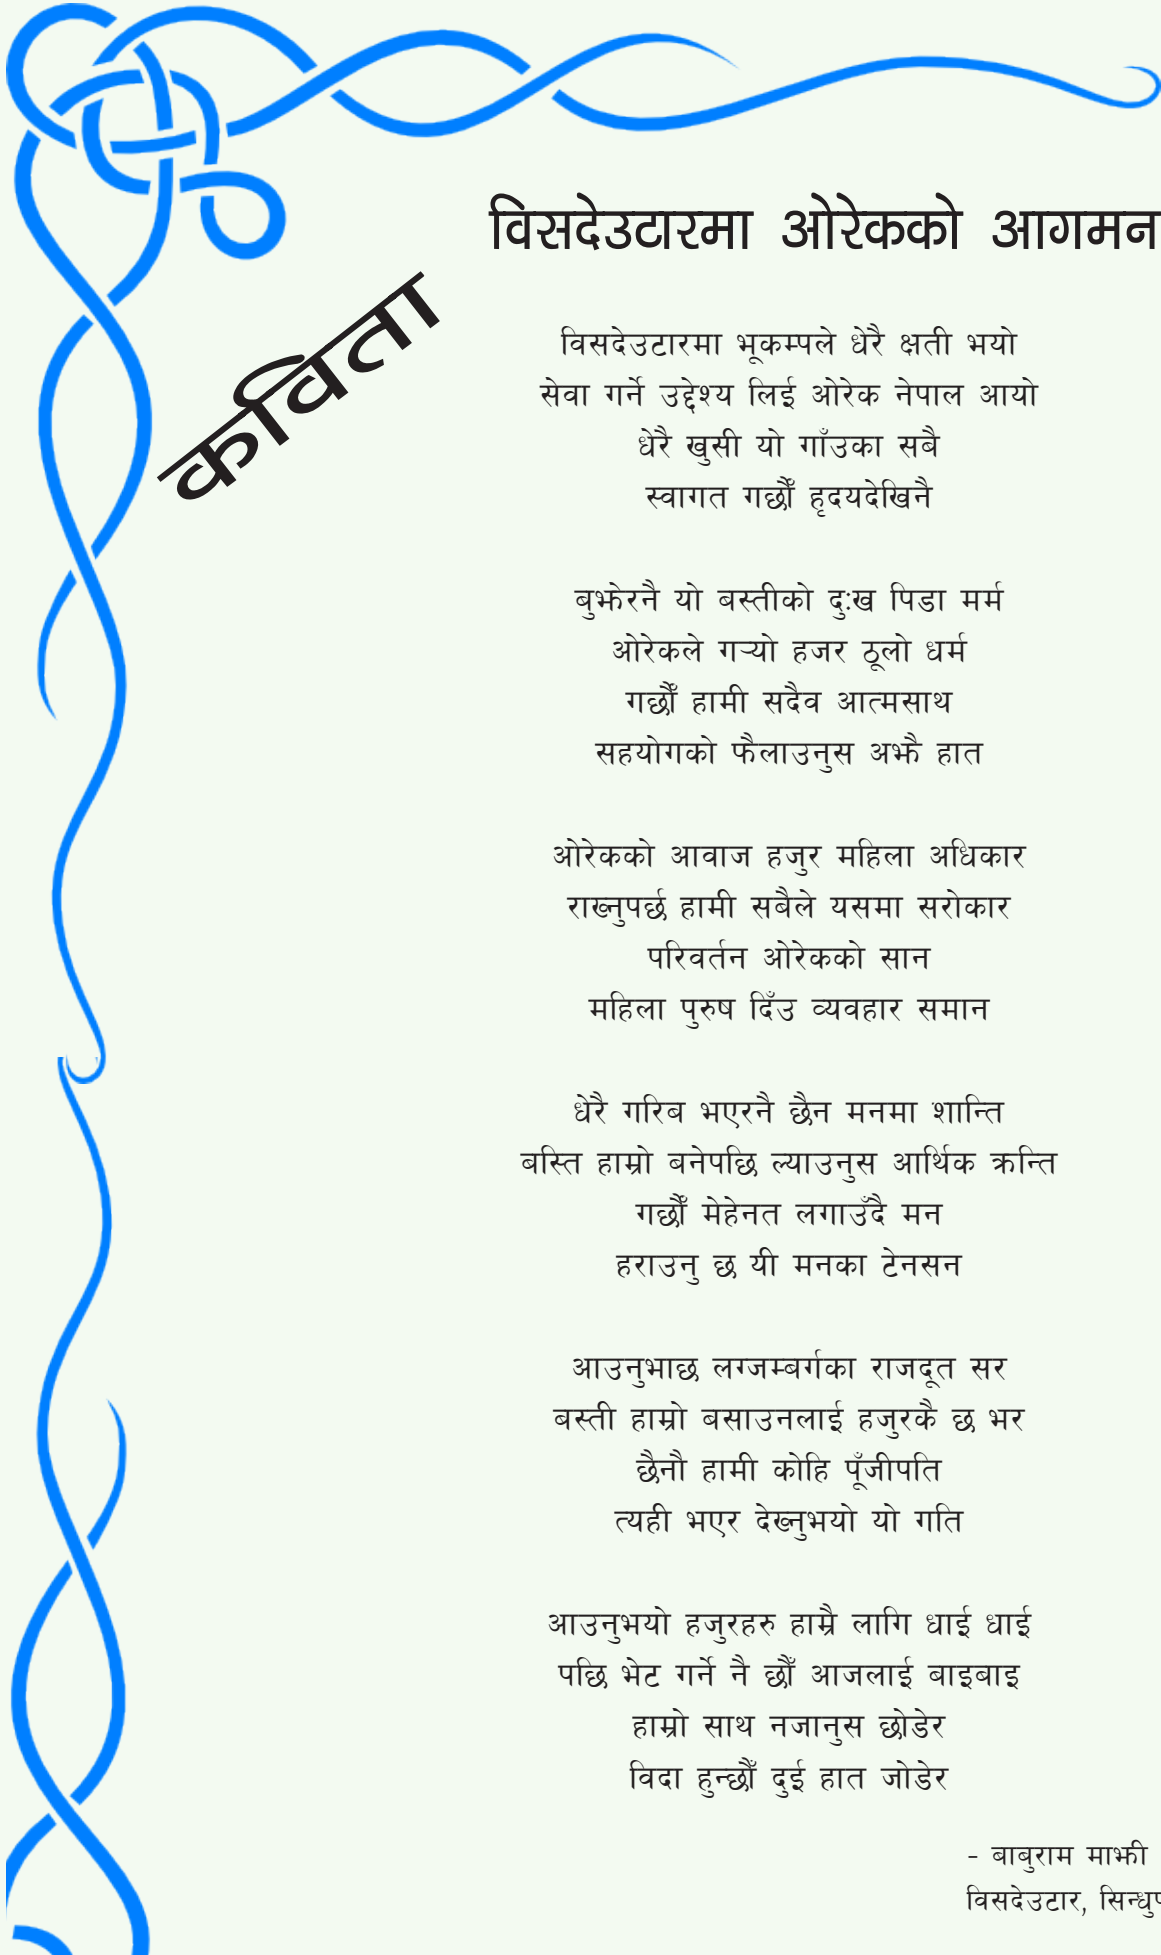 विसदेउटारमा ओरेकको आगमन
कविता
विसदेउटारमा भूकम्पले धेरै क्षती भयो
सेवा गर्ने उद्देश्य लिई ओरेक नेपाल आयो
धेरै खुसी यो गाँउका सबै
स्वागत गर्छौं हृदयदेखिनै

बुझेरनै यो बस्तीको दुःख पिडा मर्म
ओरेकले गर्‍यो हजर ठूलो धर्म
गर्छौं हामी सदैव आत्मसाथ
सहयोगको फैलाउनुस अझै हात

ओरेकको आवाज हजुर महिला अधिकार
राख्नुपर्छ हामी सबैले यसमा सरोकार
परिवर्तन ओरेकको सान
महिला पुरुष दिँउ व्यवहार समान

धेरै गरिब भएरनै छैन मनमा शान्ति
बस्ति हाम्रो बनेपछि ल्याउनुस आर्थिक क्रन्ति
गर्छौं मेहेनत लगाउँदै मन
हराउनु छ यी मनका टेनसन

आउनुभाछ लग्जम्बर्गका राजदूत सर
बस्ती हाम्रो बसाउनलाई हजुरकै छ भर
छैनौ हामी कोहि पूँजीपति
त्यही भएर देख्नुभयो यो गति

आउनुभयो हजुरहरु हाम्रै लागि धाई धाई
पछि भेट गर्ने नै छौँ आजलाई बाइबाइ
हाम्रो साथ नजानुस छोडेर
विदा हुन्छौँ दुई हात जोडेर

- बाबुराम माझी
विसदेउटार,